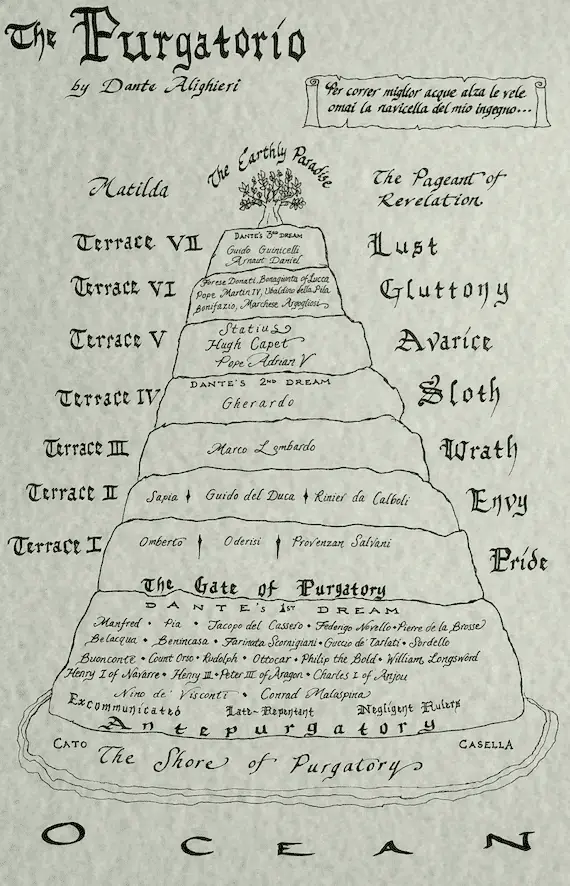 The Purgatorio
by Dante Alighieri
Per correr miglior acque alza le vele
omai la navicella del mio ingegno...
The Earthly Paradise
Matilda
The Pageant of
Revelation
Terrace VII
DANTE'S 3RD DREAM
Guido Guinicelli
Arnaut Daniel
Lust
Terrace VI
Forese Donati, Bonagiunta of Lucca
Pope Martin IV, Ubaldino della Pila
Bonifazio, Marchese Argogliosi
Gluttony
Terrace V
Statius
Hugh Capet
Pope Adrian V
Avarice
Terrace IV
DANTE'S 2ND DREAM
Gherardo
Sloth
Terrace III
Marco Lombardo
Wrath
Terrace II
Sapia Guido del Duca Rinier da Calboli
Envy
Terrace I
Omberto Oderisi Provenzan Salvani
Pride
The Gate of Purgatory
DANTE'S 1ST DREAM
Manfred • Pia • Jacopo del Cassero • Federigo Novello • Pierre de la Brosse
Belacqua • Benincasa • Farinata Scornigiani • Guccio de' Tarlati • Sordello
Buonconte • Count Orso • Rudolph • Ottocar • Philip the Bold • William Longsword
Henry I of Navarre • Henry III • Peter III of Aragon • Charles I of Anjou
Nino de' Visconti • Conrad Malaspina
Excommunicated Late-Repentant Negligent Rulers
Antepurgatory
CATO
CASELLA
The Shore of Purgatory
OCEAN